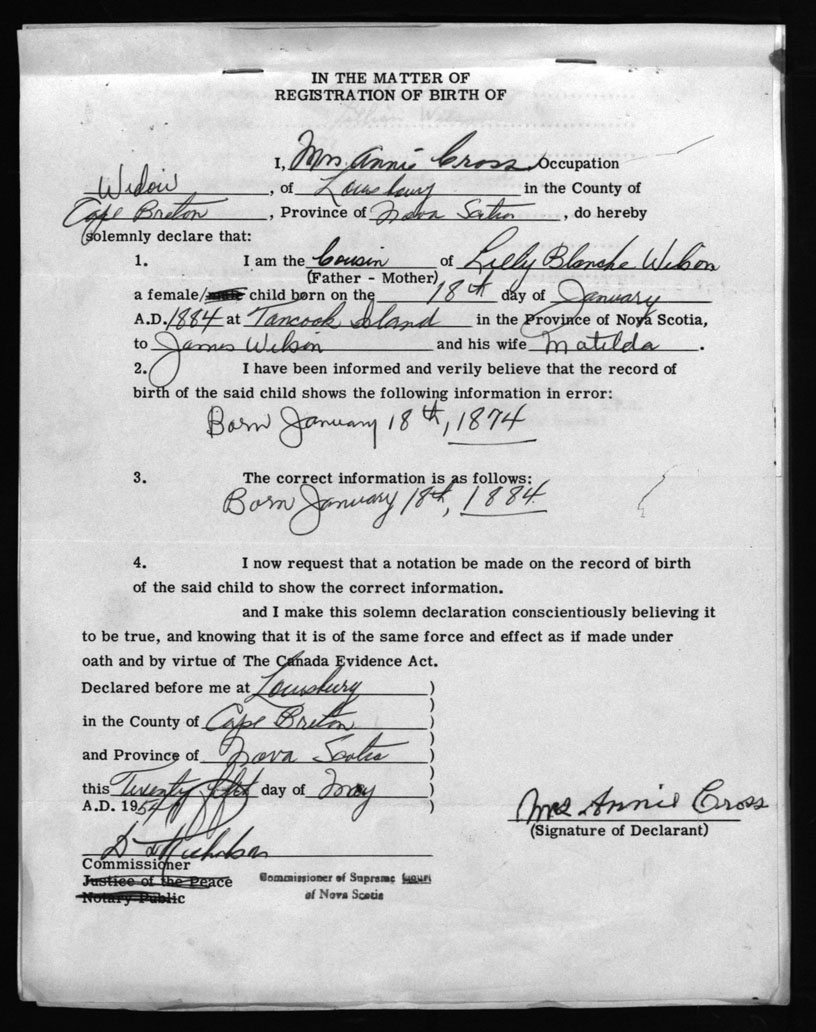 IN THE MATTER OF
REGISTRATION OF BIRTH OF
I, Mrs. Annie Cross, Occupation
Widow, of Louisburg in the County of
Cape Breton, Province of Nova Scotia, do hereby
solemnly declare that:
1. I am the Cousin of Lilly Blanche Wilson
(Father - Mother)
a female/male child born on the 18th day of January
A.D. 1884 at Tancook Island in the Province of Nova Scotia,
to James Wilson and his wife Matilda.
2. I have been informed and verily believe that the record of
birth of the said child shows the following information in error:
Born January 18th, 1874
3. The correct information is as follows:
Born January 18th, 1884
4. I now request that a notation be made on the record of birth
of the said child to show the correct information.
and I make this solemn declaration conscientiously believing it
to be true, and knowing that it is of the same force and effect as if made under
oath and by virtue of The Canada Evidence Act.
Declared before me at Louisburg )
in the County of Cape Breton )
and Province of Nova Scotia )
this Twenty fifth day of May )
A.D. 195 )
Mrs Annie Cross
(Signature of Declarant)
Nicholson
Commissioner
Justice of the Peace
Notary Public
Commissioner of Supreme Court
of Nova Scotia